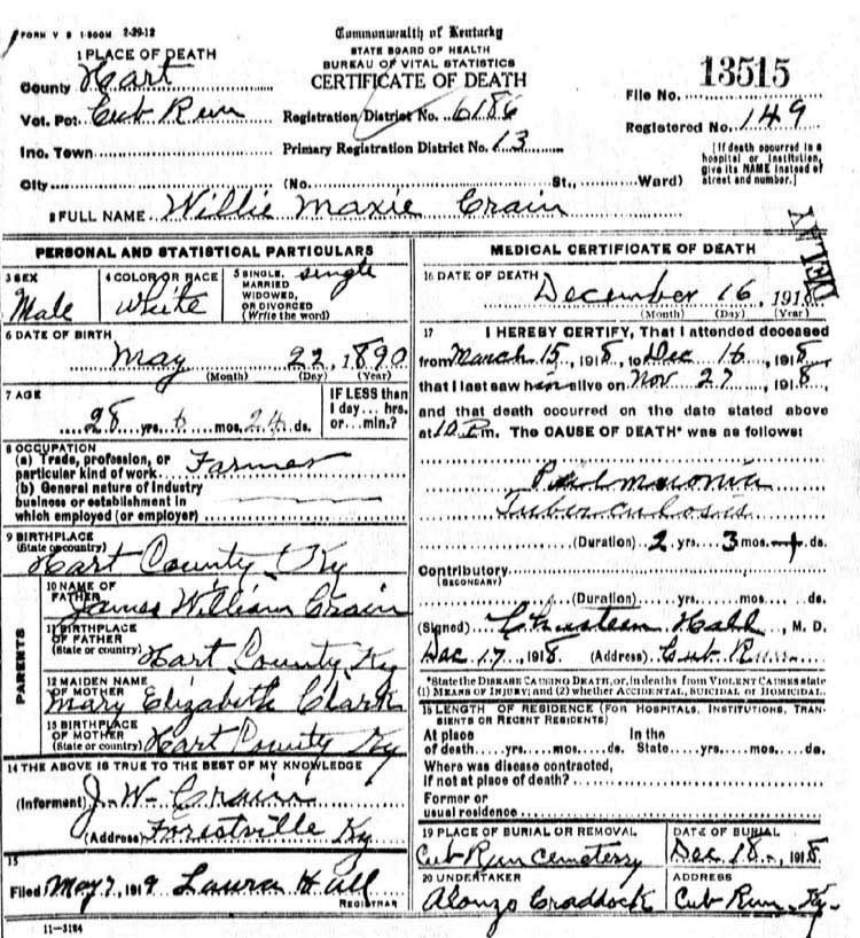 FORM V S 1-500M 2-29-12
Commonwealth of Kentucky
STATE BOARD OF HEALTH
BUREAU OF VITAL STATISTICS
CERTIFICATE OF DEATH
1 PLACE OF DEATH
County Hart
Vot. Pct. Cub Run
Inc. Town
City
Registration District No. 6186
Primary Registration District No. 13
(No. St., Ward)
File No. 13515
Registered No. 149
[If death occurred in a
hospital or institution,
give its NAME instead of
street and number.]
2 FULL NAME Willie Maxie Crain
DELAYED
PERSONAL AND STATISTICAL PARTICULARS
3 SEX
Male
4 COLOR OR RACE
White
5 SINGLE, single
MARRIED
WIDOWED,
OR DIVORCED
(Write the word)
6 DATE OF BIRTH
May 22, 1890
(Month) (Day) (Year)
7 AGE
28 yrs. 6 mos. 24 ds.
IF LESS than
1 day... hrs.
or... min.?
8 OCCUPATION
(a) Trade, profession, or
particular kind of work Farmer
(b) General nature of industry
business or establishment in
which employed (or employer)
9 BIRTHPLACE
(State or country)
Hart County Ky
PARENTS
10 NAME OF
FATHER
James William Crain
11 BIRTHPLACE
OF FATHER
(State or country) Hart County Ky
12 MAIDEN NAME
OF MOTHER
Mary Elizabeth Clark
13 BIRTHPLACE
OF MOTHER
(State or country) Hart County Ky
14 THE ABOVE IS TRUE TO THE BEST OF MY KNOWLEDGE
(Informent) J. W. Crain
(Address) Forestville Ky
15
Filed May 7, 1919 Laura Hall
REGISTRAR
11-3184
MEDICAL CERTIFICATE OF DEATH
16 DATE OF DEATH
December 16, 1918
(Month) (Day) (Year)
17 I HEREBY CERTIFY, That I attended deceased
from March 15, 1918, to Dec 16, 1918,
that I last saw him alive on Nov 27, 1918,
and that death occurred on the date stated above
at 10 P.m. The CAUSE OF DEATH* was as follows:
Pulmonia
Tuberculosis
(Duration) 2 yrs. 3 mos. ds.
Contributory
(SECONDARY)
(Duration) yrs. mos. ds.
(Signed) Hall, M. D.
Dec 17, 1918. (Address) Cub Run
*State the DISEASE CAUSING DEATH, or, in deaths from VIOLENT CAUSES state
(1) MEANS OF INJURY; and (2) whether ACCIDENTAL, SUICIDAL or HOMICIDAL.
18 LENGTH OF RESIDENCE (FOR HOSPITALS, INSTITUTIONS, TRAN-
SIENTS OR RECENT RESIDENTS)
At place In the
of death yrs. mos. ds. State yrs. mos. ds.
Where was disease contracted,
If not at place of death?
Former or
usual residence
19 PLACE OF BURIAL OR REMOVAL
Cub Run Cemeterry
DATE OF BURIAL
Dec 18, 1918
20 UNDERTAKER
Alonzo Craddock
ADDRESS
Cub Run Ky.